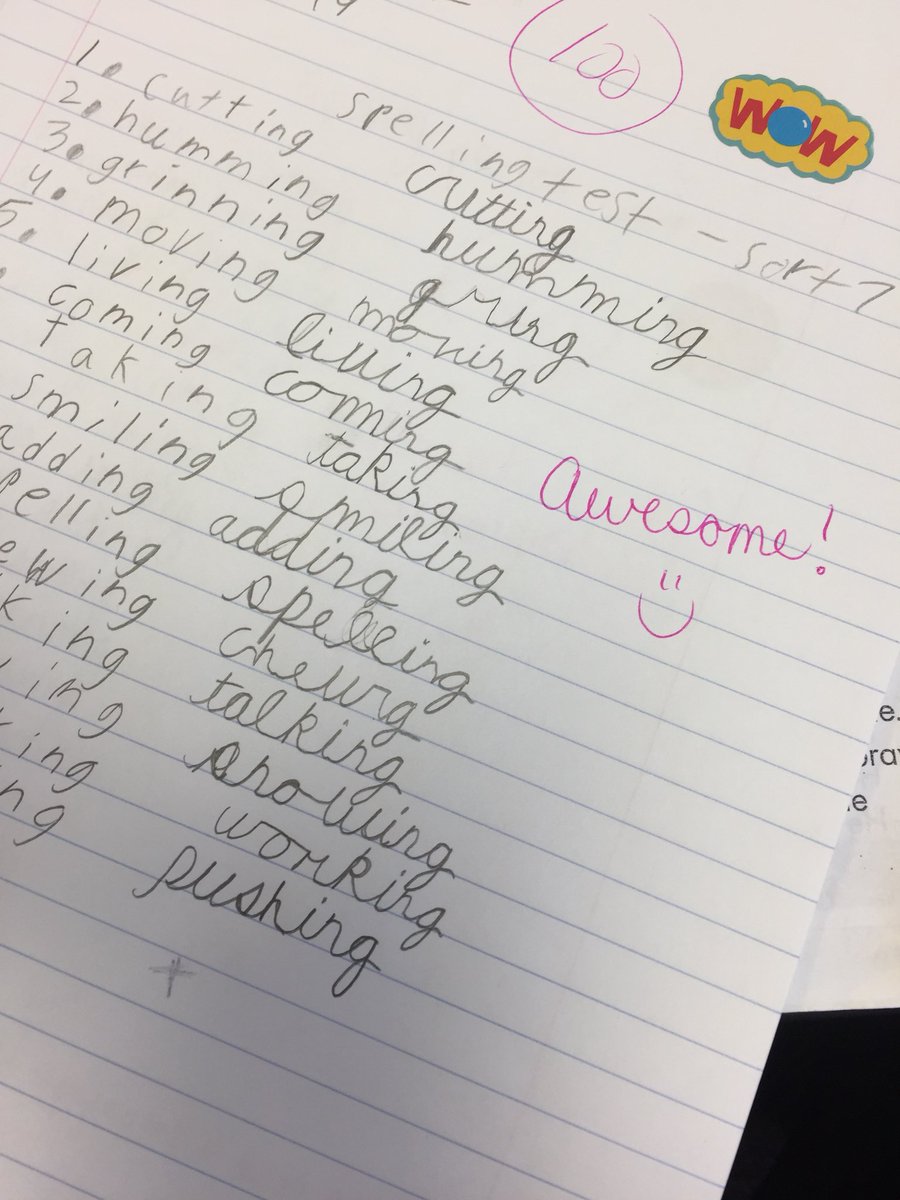 100
WOW
spelling test - sort 7
1. cutting cutting
2. humming humming
3. grinning
4. moving moving
5. living living
coming coming
taking taking
smiling smiling
adding adding
pelling spelling
ewing chewing
king talking
ing snowing
king working
ing pushing
+
Awesome!
e.
e